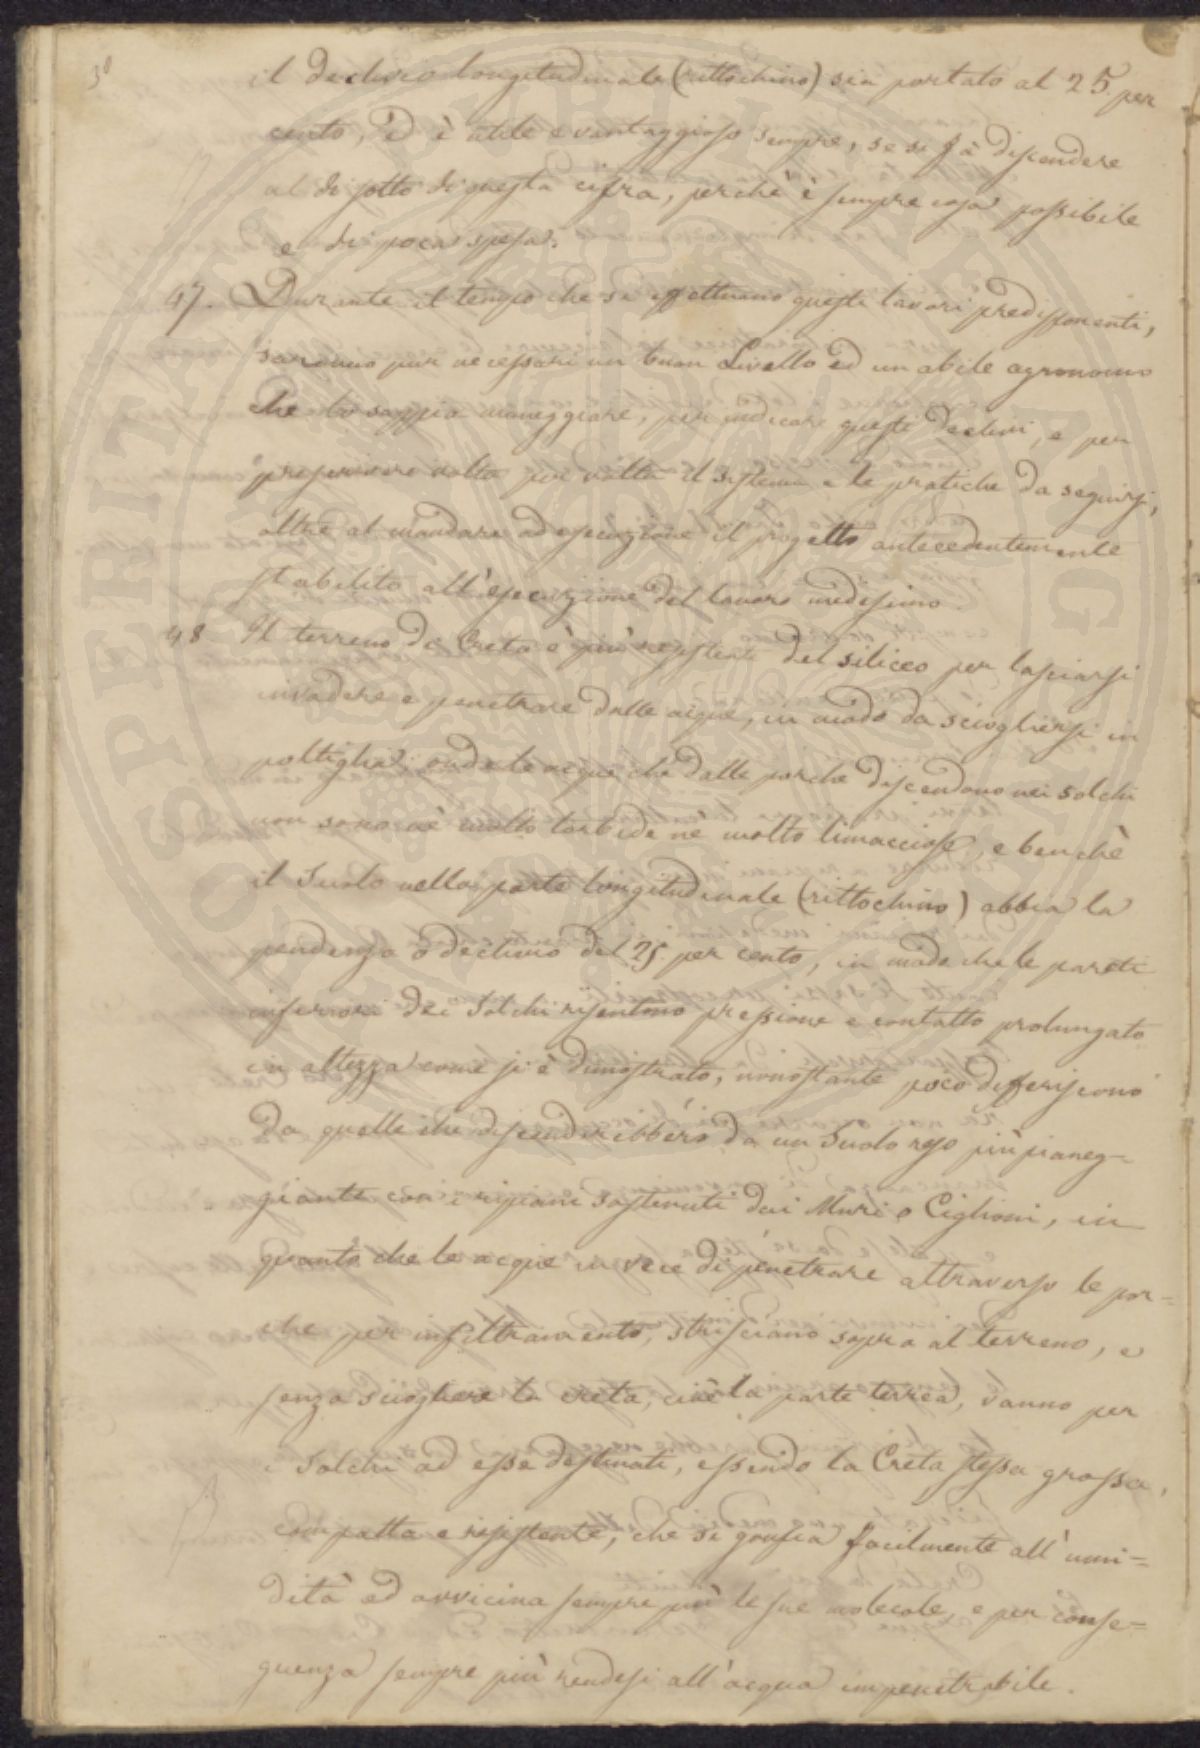 30
il declivio longitudinale (rittochino) sia portato al 25 per
cento, ed è utile e vantaggioso sempre, se si fà discendere
al di sotto di questa cifra, perchè è sempre cosa possibile
e di poca spesa.
47. Durante il tempo che si effettuano questi lavori predisponenti,
saranno pur necessari un buon Livello ed un abile agronomo
che lo sappia maneggiare, per indicare questi declivi, e per
prescrivere volta per volta il sistema e le pratiche da seguirsi,
oltre al mandare ad esecuzione il progetto antecedentemente
stabilito all'esecuzione del lavoro medesimo.
48 Il terreno di Creta è più resistente del siliceo per lasciarsi
invadere e penetrare dalle acque, in modo da sciogliersi in
poltiglia; onde le acque che dalle porche discendono nei solchi
non sono nè molto torbide nè molto limacciose, e benchè
il Suolo nella parte longitudinale (rittochino) abbia la
pendenza o declivio del 25. per cento, in modo che le pareti
inferiori dei Solchi risentono pressione e contatto prolungato
in altezza come si è dimostrato, nonostante poco differiscono
da quelle che discenderebbero da un Suolo reso più pianeg-
giante con i ripiani sostenuti dai Muri o Ciglioni, in
quanto che le acque in vece di penetrare attraverso le por-
che per infiltramento, strisciano sopra al terreno, e
senza sciogliere la creta, cioè la parte terrea, vanno per
i Solchi ad esse destinati, essendo la Creta stessa grossa,
compatta e resistente, che si gonfia facilmente all'umi-
dità ed avvicina sempre più le sue molecole, e per conse-
guenza sempre più rendesi all'acqua impenetrabile.
SPERITAT PUBLIC AUG